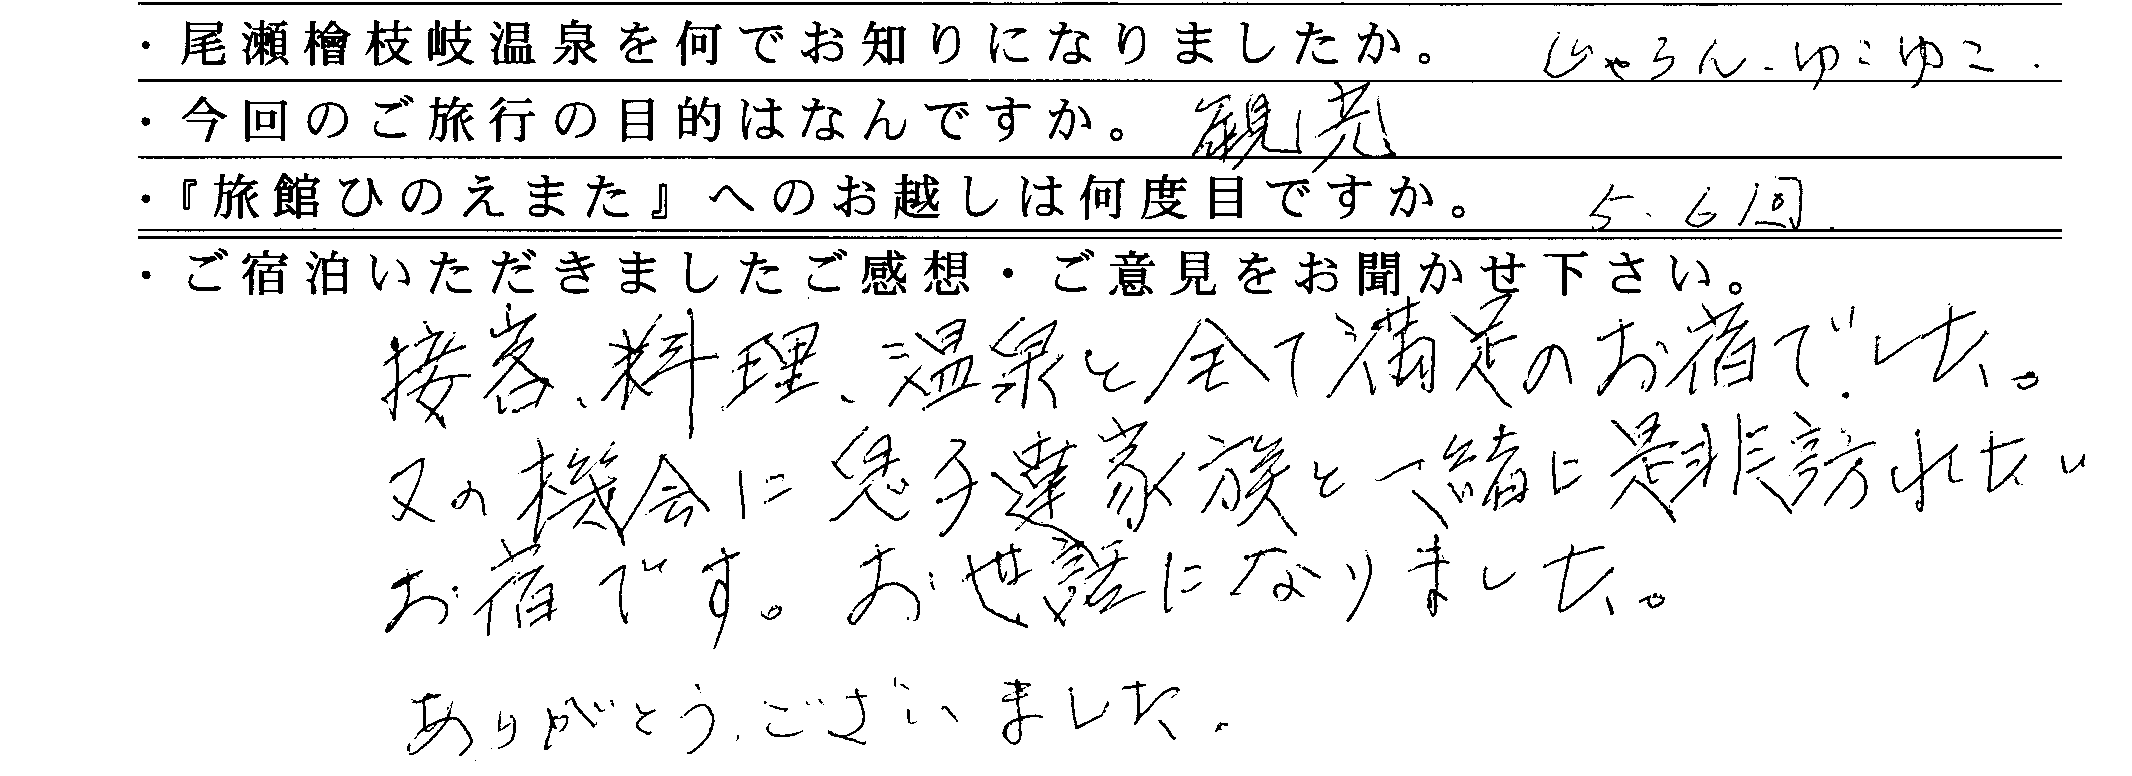 ・尾瀬檜枝岐温泉を何でお知りになりましたか。 じゃらん.ゆこゆこ.
・今回のご旅行の目的はなんですか。 観光
・『旅館ひのえまた』へのお越しは何度目ですか。 5.6回.
・ご宿泊いただきましたご感想・ご意見をお聞かせ下さい。
接客、料理、温泉と全て満足のお宿でした。
又の機会に息子達家族と一緒に是非訪れたい
お宿です。お世話になりました。
ありがとうございました.